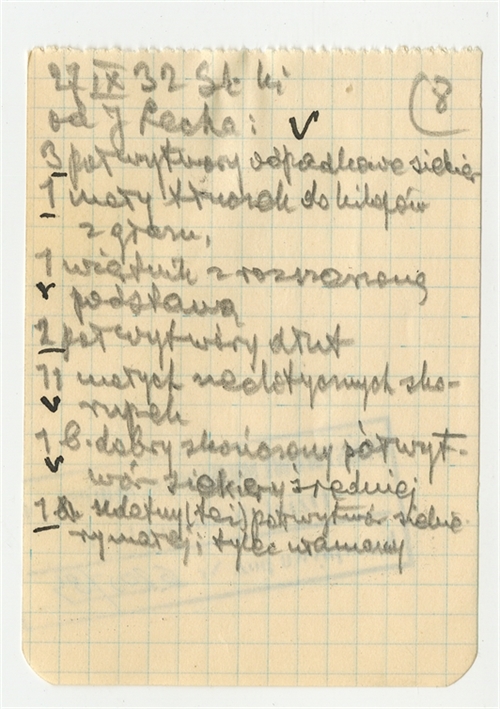 27 IX 32 St-ki (8
od J Lecha: V
3 półwytwory odpadkowe siekier
1 mały tłuczek do kilofów
z głazu,
1 wiątnik z rozszerzoną
podstawą
2 półwytwóry dłut
11 małych neolitycznych sko-
rupek
1 b. dobry skończony półwyt-
wór siekiery średniej
1 (tej) półwytwór siekie
ry małej; tylec ułamowy